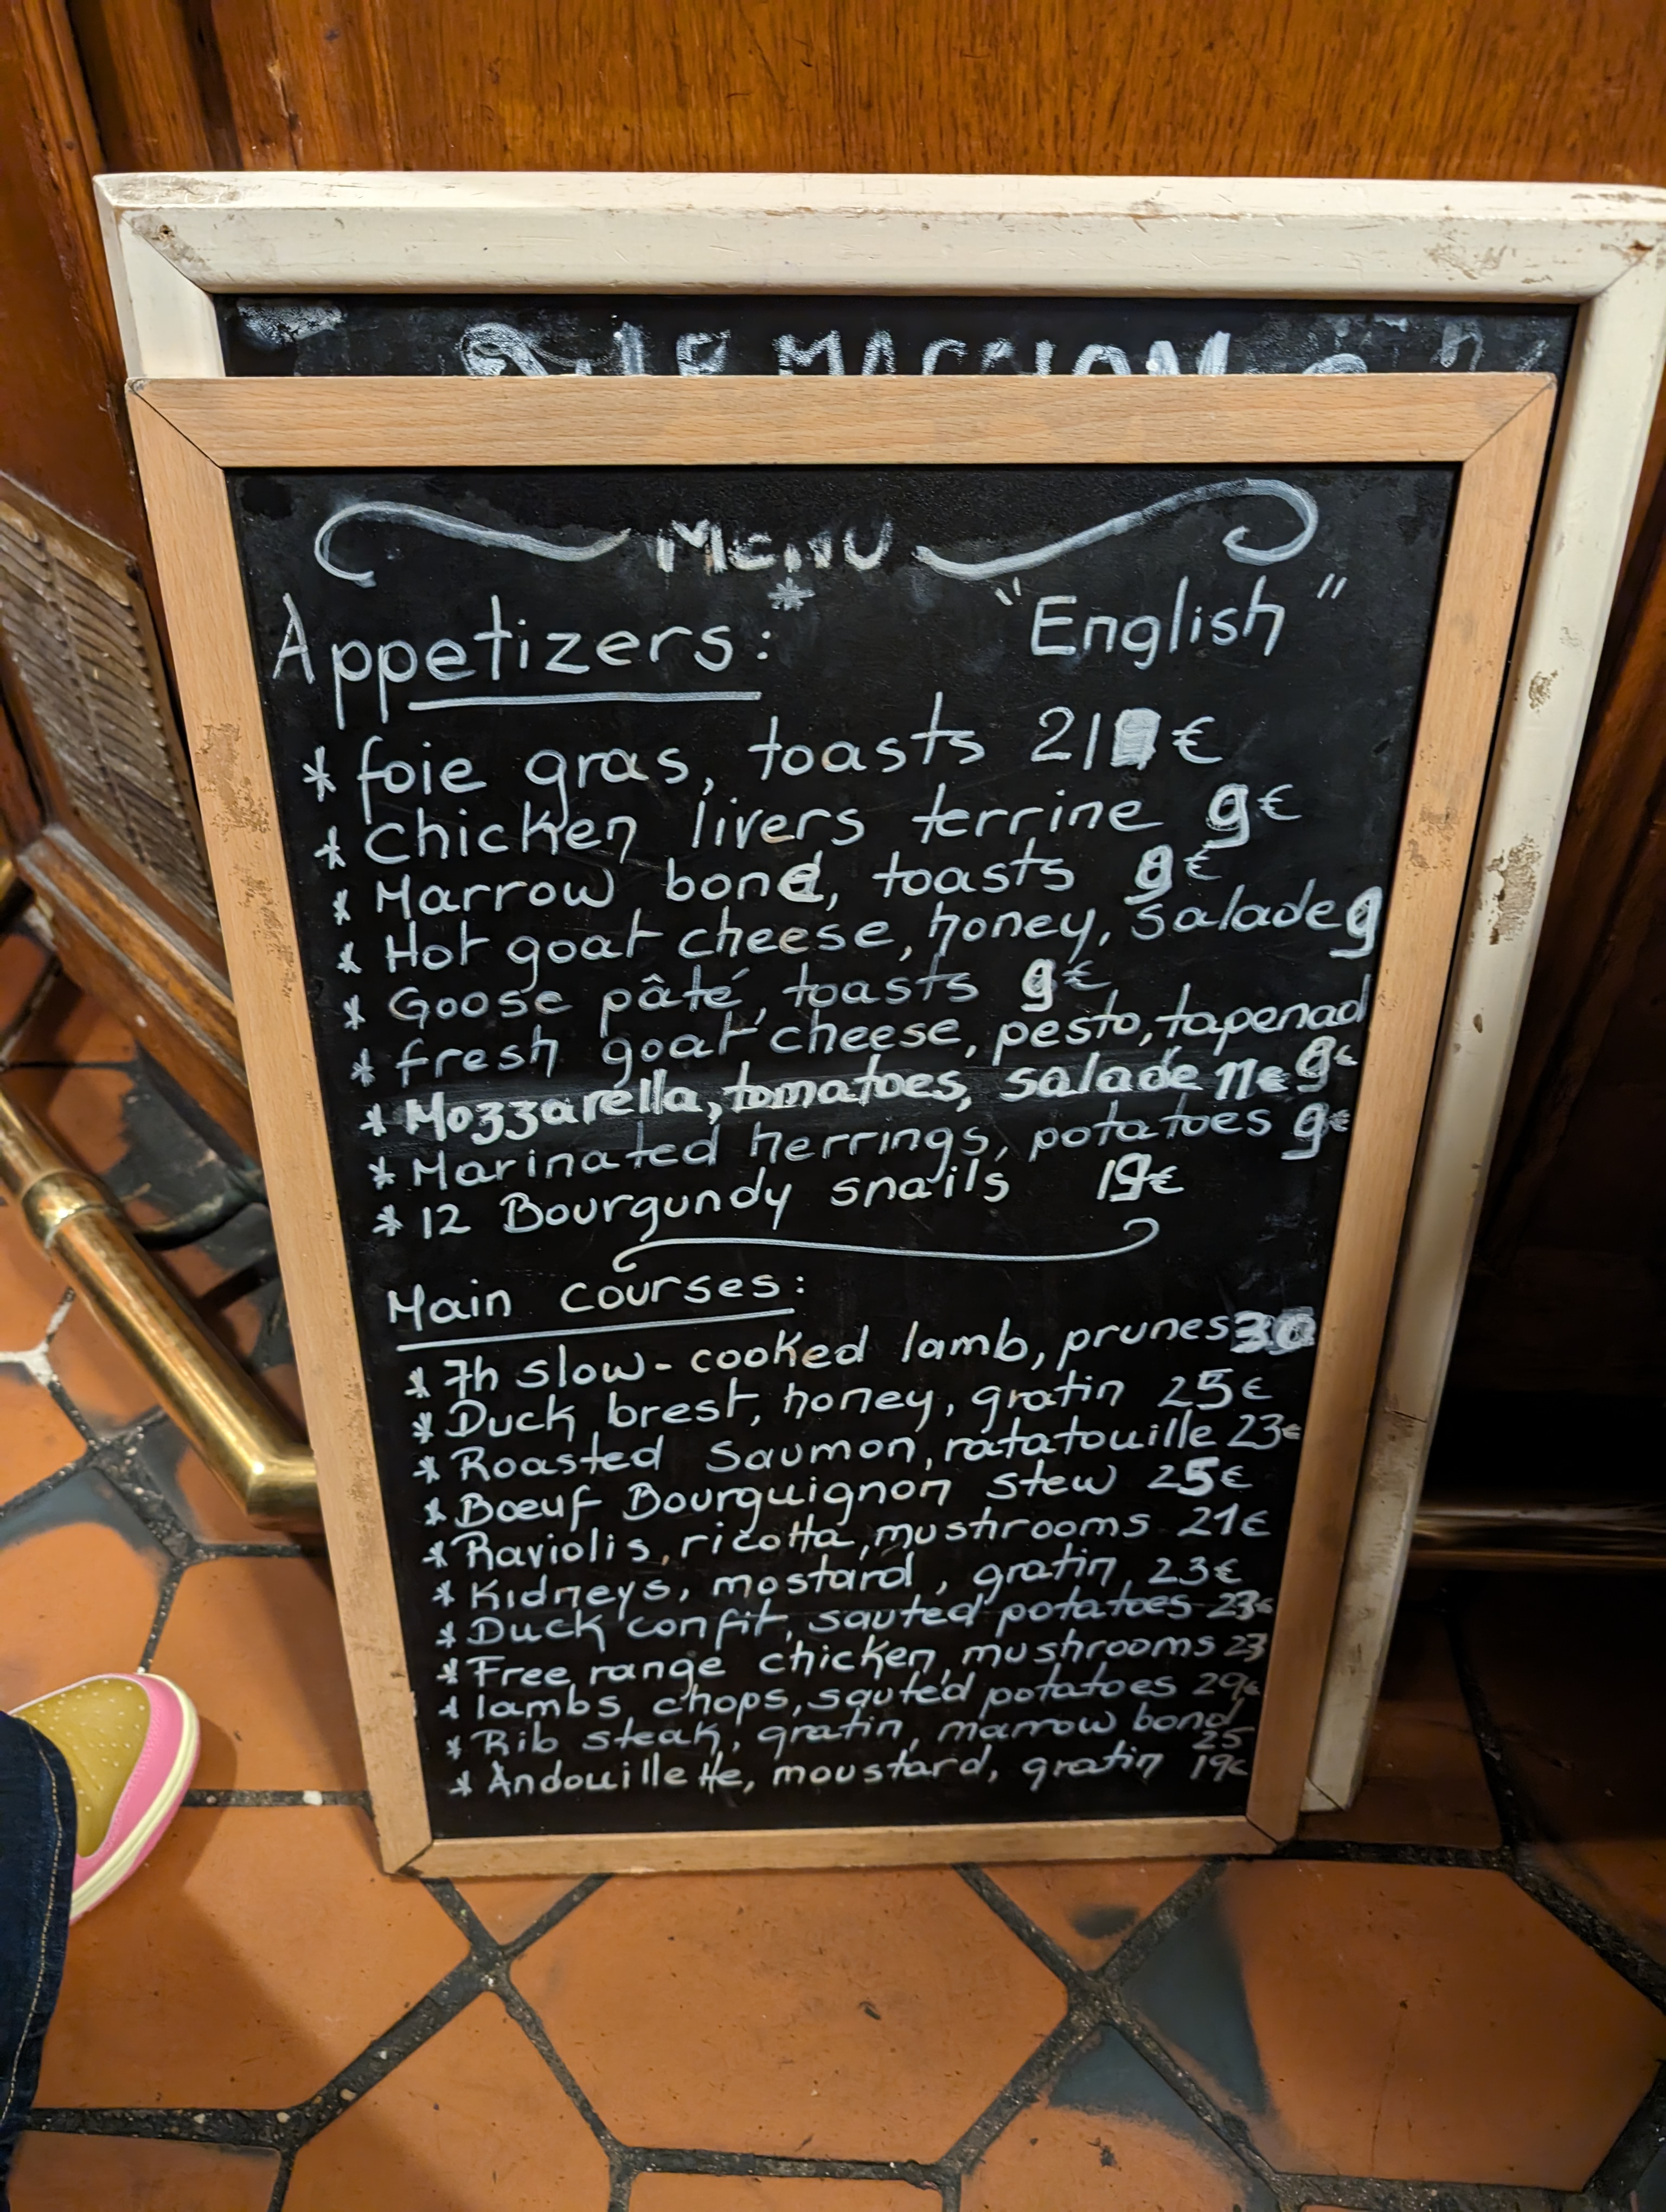 LE MACHON
MENU
Appetizers:
"English"
* foie gras, toasts 21€
* Chicken livers terrine 9€
* Marrow bone, toasts 9€
* Hot goat cheese, honey, salade 9
* Goose pâté, toasts 9€
* fresh goat cheese, pesto, tapenad
9€
* Mozzarella, tomatoes, salade 11€
* Marinated herrings, potatoes 9€
* 12 Bourgundy snails 19€
Main courses:
* 7h slow-cooked lamb, prunes 30
* Duck brest, honey, gratin 25€
* Roasted Saumon, ratatouille 23€
* Bœuf Bourguignon stew 25€
* Raviolis, ricotta, mushrooms 21€
* Kidneys, mostard, gratin 23€
* Duck confit, sauted potatoes 23€
* Free range chicken, mushrooms 23
* lambs chops, sauted potatoes 29€
* Rib steak, gratin, marrow bond
25
* Andouillette, moustard, gratin 19€